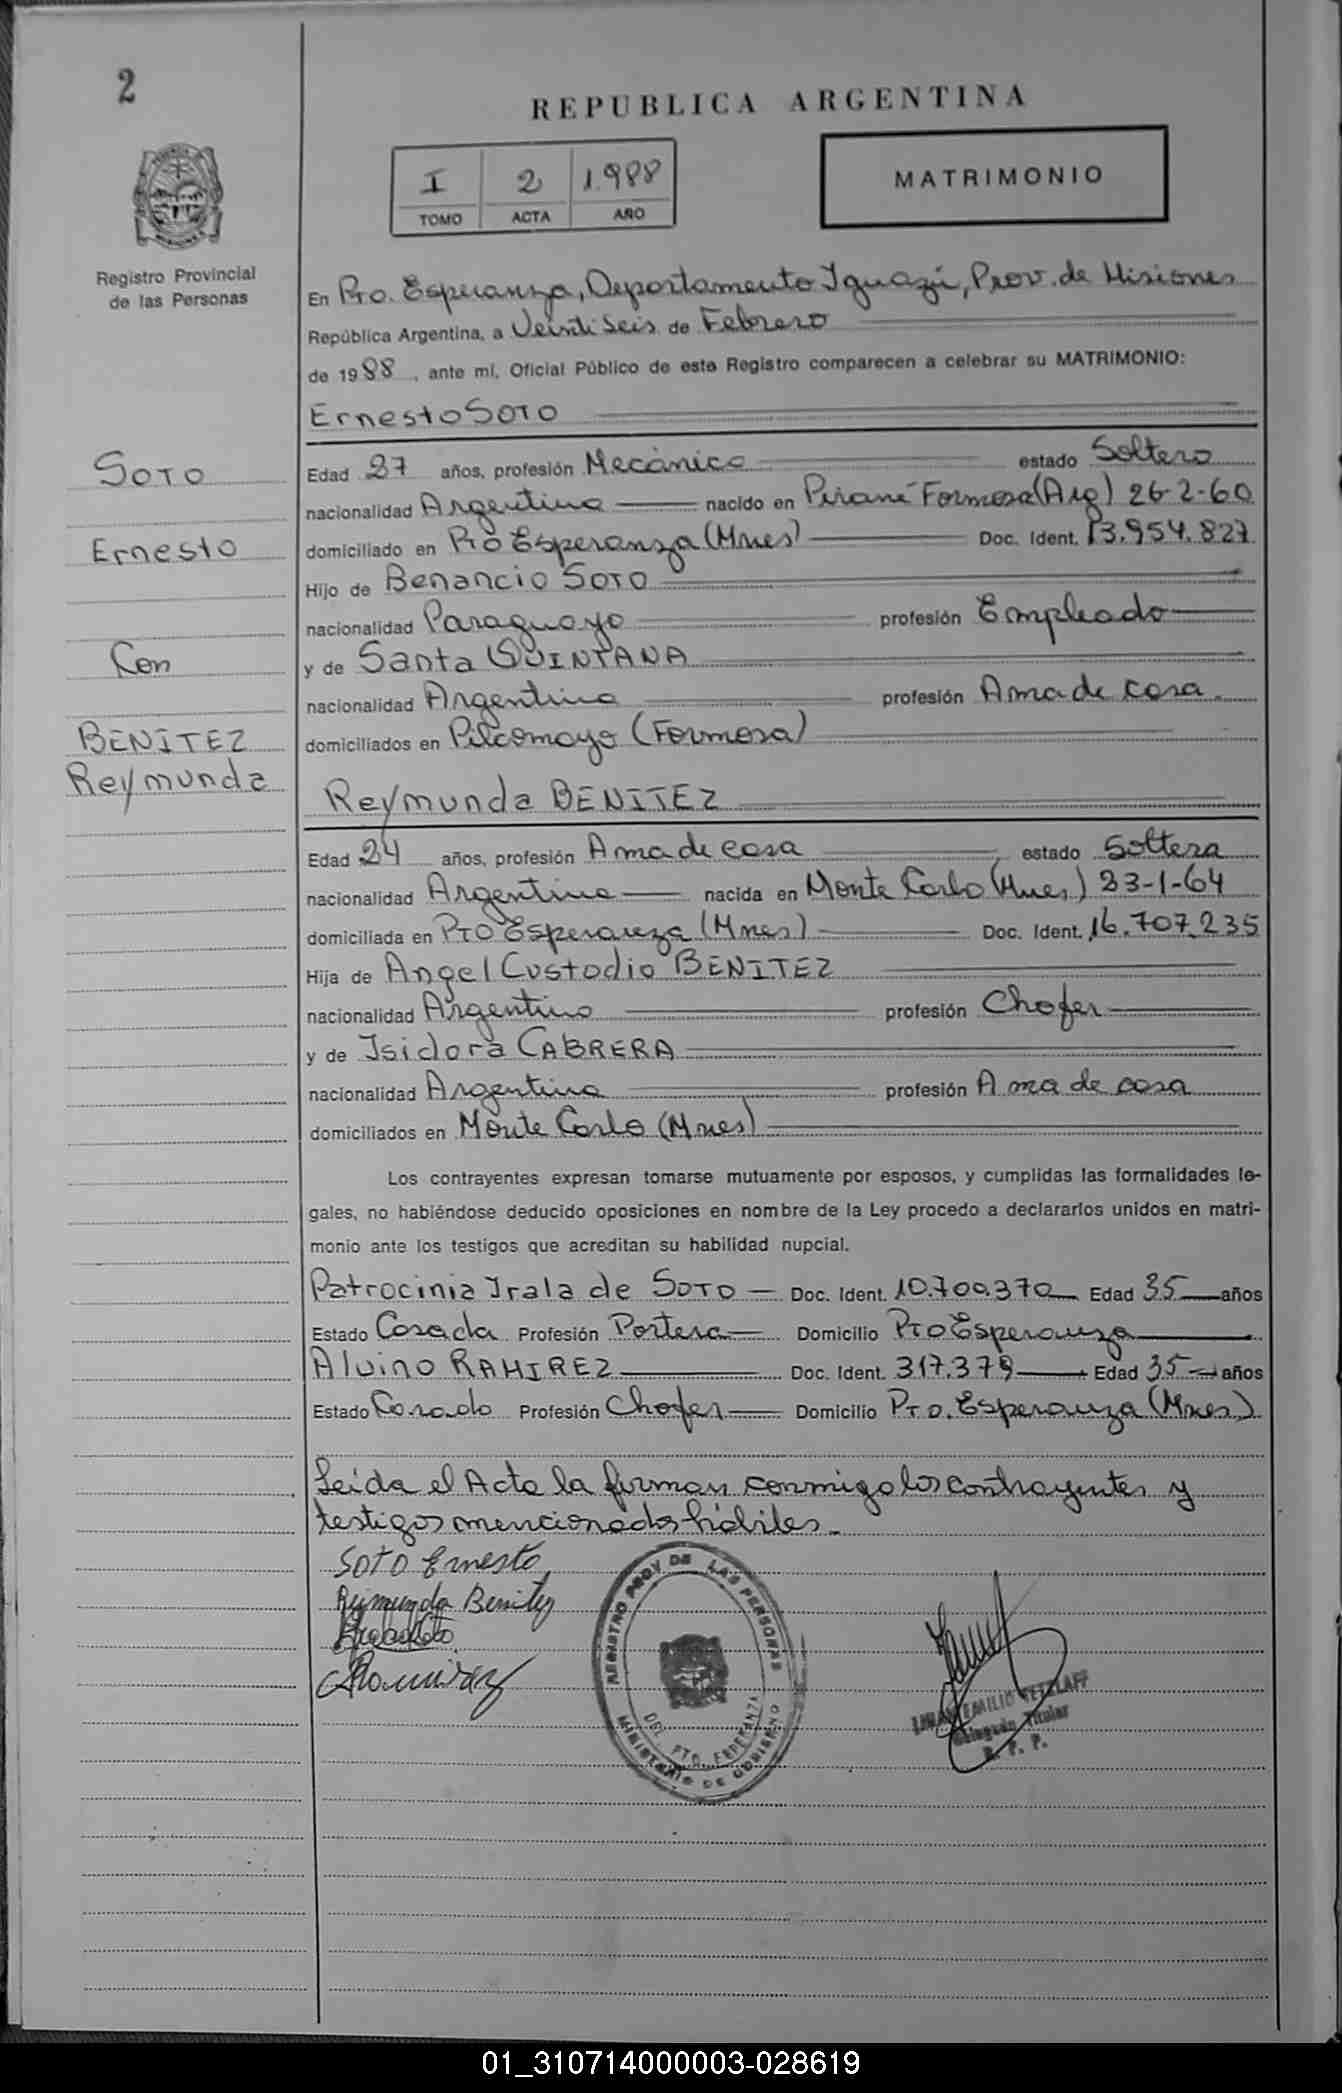 2
REPUBLICA ARGENTINA
I 2 1.988
TOMO ACTA AÑO
MATRIMONIO
Registro Provincial
de las Personas
En Pto. Esperanza, Departamento Iguazú, Prov. de Misiones
República Argentina, a Veintiseis de Febrero
de 1988, ante mí, Oficial Público de este Registro comparecen a celebrar su MATRIMONIO:
Ernesto SOTO
SOTO
Ernesto
Con
BENITEZ
Reymunda
Edad 27 años, profesión Mecánico estado Soltero
nacionalidad Argentina nacido en Pirané Formosa (Arg) 26-2-60
domiciliado en Pto Esperanza (Mnes) Doc. Ident. 13.954.827
Hijo de Benancio SOTO
nacionalidad Paraguayo profesión Empleado
y de Santa QUINTANA
nacionalidad Argentina profesión Ama de casa.
domiciliados en Pilcomayo (Formosa)
Reymunda BENITEZ
Edad 24 años, profesión Ama de casa estado Soltera
nacionalidad Argentina nacida en Monte Carlo (Mnes) 23-1-64
domiciliada en Pto Esperanza (Mnes) Doc. Ident. 16.707.235
Hija de Angel Custodio BENITEZ
nacionalidad Argentino profesión Chofer
y de Isidora CABRERA
nacionalidad Argentina profesión Ama de casa
domiciliados en Monte Carlo (Mnes)
Los contrayentes expresan tomarse mutuamente por esposos, y cumplidas las formalidades le-
gales, no habiéndose deducido oposiciones en nombre de la Ley procedo a declararlos unidos en matri-
monio ante los testigos que acreditan su habilidad nupcial.
Patrocinia Irala de SOTO Doc. Ident. 10.700.370 Edad 35 años
Estado Casada Profesión Portera Domicilio Pto Esperanza
Alvino RAMIREZ Doc. Ident. 317.379 Edad 35 años
Estado Casado Profesión Chofer Domicilio Pto. Esperanza (Mnes)
Leida el Acta la firman conmigo los contrayentes y
testigos mencionados hábiles.
SOTO Ernesto
Reimunda Benitez
Ramirez
REGISTRO PROV DE LAS PERSONAS
DEL. PTO. ESPERANZA
MINISTERIO DE GOBIERNO
EMILIO TETZLAFF
Delegado Titular
R. P. P.
01_310714000003-028619